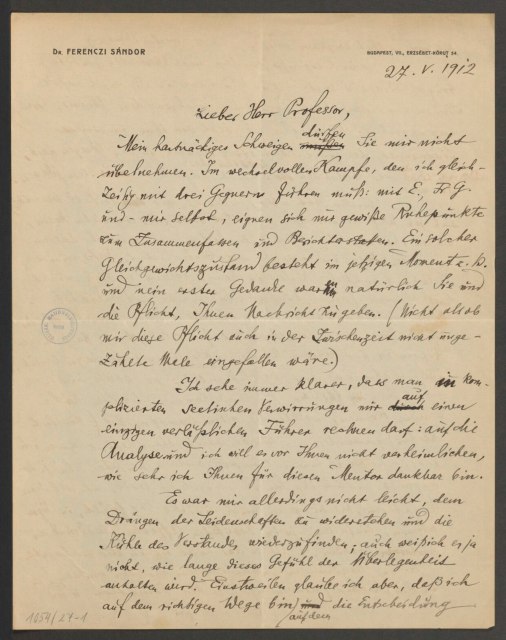 Dr. FERENCZI SÁNDOR
BUDAPEST, VII., ERZSÉBET-KÖRUT 54.
27. V. 1912
Lieber Herr Professor,
dürfen
Mein hartnäckiges Schweigen müssen Sie mir nicht
übelnehmen. Im wechselvollen Kampfe, den ich gleich-
zeitig mit drei Gegnern führen muß: mit E., Fr G.
und – mir selbst, eignen sich nur gewiße Ruhepunkte
zum Zusammenfassen und Berichterstatten. Ein solcher
Gleichgewichtszustand besteht im jetzigen Moment
und mein erster Gedanke waren natürlich Sie und
die Pflicht, Ihnen Nachricht zu geben. (Nicht als ob
mir diese Pflicht auch in der Zwischenzeit nicht unge-
zählte Male eingefallen wäre.)
Ich sehe immer klarer, dass man in kom-
auf
plizierten seelischen Verwirrungen nur durch einen
einzigen verläßlichen Führer rechnen darf: auf die
Analyse und ich will es vor Ihnen nicht verheimlichen,
wie sehr ich Ihnen für diesen Mentor dankbar bin.
Es war mir allerdings nicht leicht, dem
Drängen der Leidenschaften zu widerstehen und die
Kühle des Verstandes wiederzufinden; auch weiß ich es ja
nicht, wie lange dieses Gefühl der Überlegenheit
anhalten wird. Einstweilen glaube ich aber, daß ich
auf dem richtigen Wege bin, und die Entscheidung
auf dem
1054/27-1